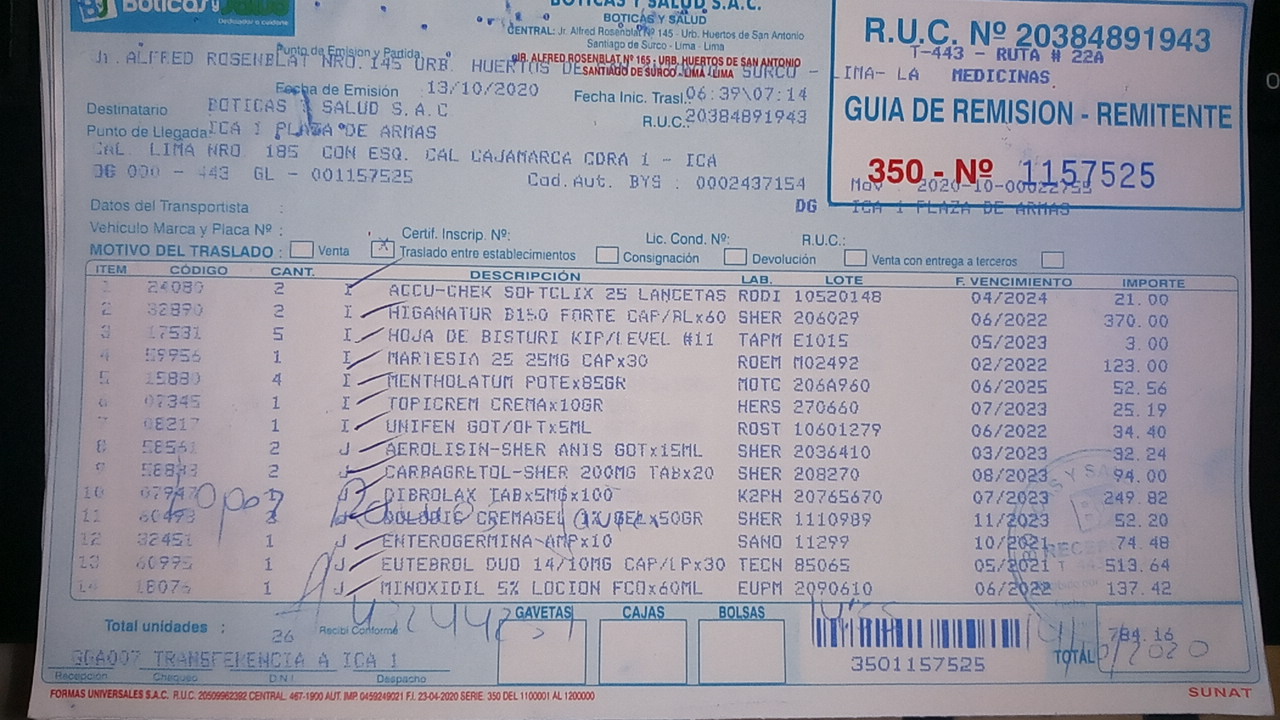 Boticas y Salud
Dedicados a cuidarte
BOTICAS Y SALUD S.A.C.
BOTICAS Y SALUD
CENTRAL: Jr. Alfred Rosenblat Nº 145 - Urb. Huertos de San Antonio
Santiago de Surco - Lima - Lima
JR. ALFRED ROSENBLAT Nº 165 - URB. HUERTOS DE SAN ANTONIO
SANTIAGO DE SURCO - LIMA - LIMA
R.U.C. Nº 20384891943
T-443 - RUTA # 22A
MEDICINAS
GUIA DE REMISION - REMITENTE
350 - Nº 1157525
Mov 2020-10-00022755
DG ICA 1 PLAZA DE ARMAS
Punto de Emision y Partida:
Jr. ALFRED ROSENBLAT NRO. 145 URB. HUERTOS DE SURCO - LIMA- LA
Fecha de Emisión 13/10/2020 Fecha Inic. Trasl.: 06:39\07:14
Destinatario BOTICAS Y SALUD S.A.C R.U.C.: 20384891943
Punto de Llegada: ICA 1 PLAZA DE ARMAS
CAL. LIMA NRO 185 CON ESQ. CAL CAJAMARCA CDRA 1 - ICA
DG 000 - 443 GL - 001157525 Cod.Aut. BYS : 0002437154
Datos del Transportista :
Vehículo Marca y Placa Nº : Certif. Inscrip. Nº: Lic. Cond. Nº: R.U.C.:
MOTIVO DEL TRASLADO : Venta X Traslado entre establecimientos Consignación Devolución Venta con entrega a terceros
ITEM CÓDIGO CANT. DESCRIPCIÓN LAB. LOTE F. VENCIMIENTO IMPORTE
1 24089 2 I ACCU-CHEK SOFTCLIX 25 LANCETAS RODI 10520148 04/2024 21.00
2 32890 2 I HIGANATUR B150 FORTE CAP/BLx60 SHER 206029 06/2022 370.00
3 17531 5 I HOJA DE BISTURI KIP/LEVEL #11 TAPM E1015 05/2023 3.00
4 59956 1 I MARTESIA 25 25MG CAPx30 ROEM M02492 02/2022 123.00
5 15880 4 I MENTHOLATUM POTEx85GR MOTC 206A960 06/2025 52.56
6 07345 1 I TOPICREM CREMAx10GR HERS 270660 07/2023 25.19
7 08217 1 I UNIFEN GOT/OFTx5ML ROST 10601279 06/2022 34.40
8 58561 2 J AEROLISIN-SHER ANIS GOTx15ML SHER 2036410 03/2022 32.24
9 2 J CARBAGRETOL-SHER 200MG TABx20 SHER 208270 08/2023 94.00
10 07947 J DIBROLAX TABx5MGx100 K2PH 20765670 07/2023 249.82
11 60493 J DOLOBIC CREMAGEL 1% GELx50GR SHER 1110989 11/2023 52.20
12 32451 1 J ENTEROGERMINA-AMPx10 SANO 11299 10/2021 74.48
13 60995 1 J EUTEBROL DUO 14/10MG CAP/LPx30 TECN 85065 05/2021 513.64
14 18076 1 J MINOXIDIL 5% LOCION FCOx60ML EUPM 2090610 06/2022 137.42
Total unidades : 26 Recibi Conforme GAVETAS CAJAS BOLSAS
3501157525
TOTAL 784.16
GOA007 TRANSFERENCIA A ICA 1
Recepción Chequeo D.N.I. Despacho
FORMAS UNIVERSALES S.A.C. R.U.C. 20509962392 CENTRAL. 467-1900 AUT. IMP. 0459249021 F.I. 23-04-2020 SERIE. 350 DEL 1100001 AL 1200000
SUNAT